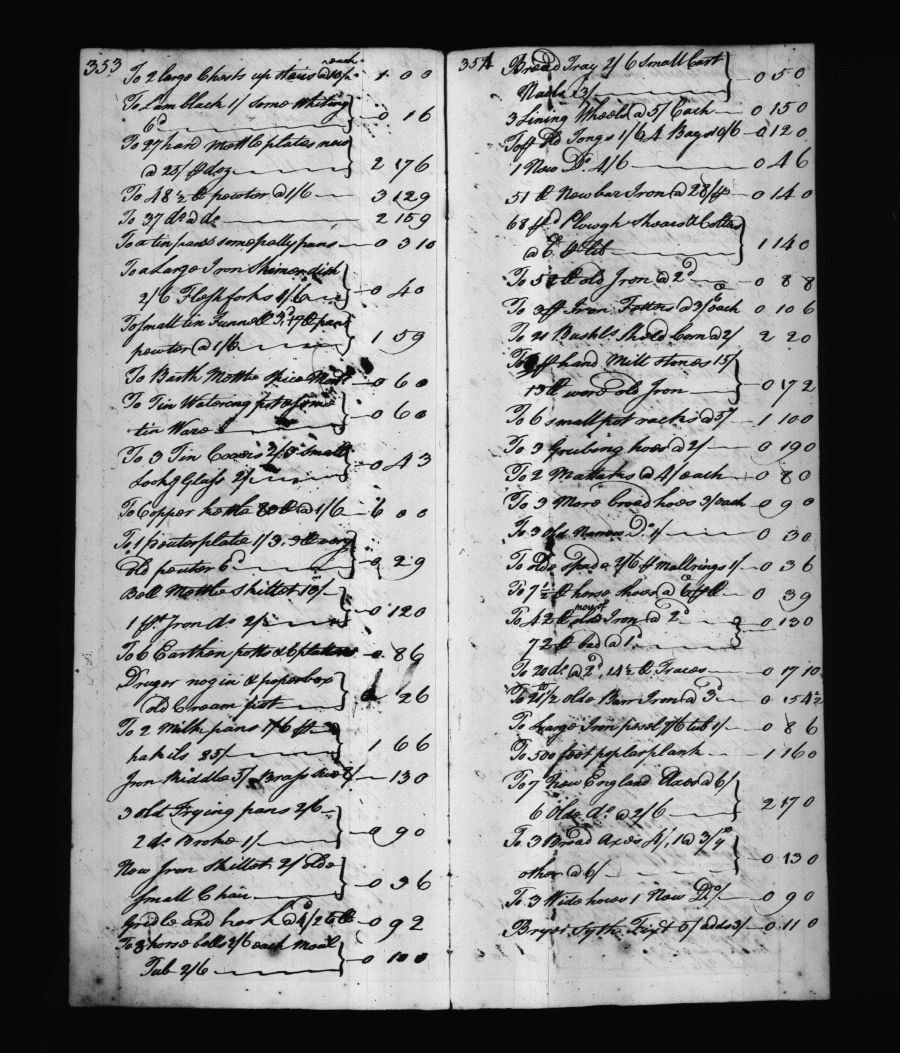 353
each
To 2 large Chests up stairs @ 10/ 1 0 0
To Lamblack 1/ some Whiting
6d 0 1 6
To 27 hard Mettle plates new
@ 25/ doz 2 17 6
To 48½ lb pewter @ 1/6 3 12 9
To 37 do @ do 2 15 9
To a tin pans some patty pans 0 3 10
To a Large Iron Skimer dish
2/6 Fleshforks 1/6 0 4 0
To small tin Funnell 3d, 17 lb
pewter @ 1/6 1 5 9
To Bath Mettle Spice Mort 0 6 0
To Tin Watering pot & some
tin Ware 0 6 0
To 3 Tin 2/3 small
Look'g Glass 2/ 0 4 3
To Copper kettle 80 lb @ 1/6 6 0 0
To 1 pewter plate 1/3, 3 lb very
old pewter 6d 0 2 9
Bell Mettle Skillet 10/
1 Iron do 2/ 0 12 0
To 6 Earthen potts & 6 plates 0 8 6
Druger nogin & peperbox
old Cream pott 2 6
To 2 Milk pans 1/6
25/ 1 6 6
Iron kiddle 5/ Brass 8/ 13 0
3 old Frying pans 2/6
2 do Broke 1/ 0 9 0
New Iron Skillet 2/ olde
small Chair 0 3 6
Gridle and hook @ 0 9 2
To 3 horse bells 2/6 each Meal
Tub 2/6 0 10 0
354
Bread Tray 2/6 Small Cart
Nails 3/ 0 5 0
3 Lining Wheels @ 5/ Each 0 15 0
Old Tongs 1/6 4 Bags 10/6 0 12 0
1 New Do 4/6 0 4 6
51 lb New bar Iron @ 28/ 0 14 0
68 Plough Shears & Colters
@ 6d lb 1 14 0
To 52 lb old Iron @ 2d 0 8 8
To 3 Iron Fetters @ 3/6 each 0 10 6
To 21 Bushls Sheld Corn @ 2/ 2 2 0
To hand Mill stones 15/
13 lb wore old Iron 0 17 2
To 6 small pot racks @ 5/ 1 10 0
To 3 Grubing hoes @ 2/ 0 19 0
To 2 Mattocks @ 4/ each 0 8 0
To 3 More broad hoes 3/ each 0 9 0
To 3 old Narrow Do 1/ 0 3 0
To olde Spade 2/6 mallrings 1/ 0 3 6
To 7½ lb horse shoes @ 6d lb 0 3 9
To 42 lb olde Iron @ 2d
72 lb bad @ 1d 0 13 0
To 20 do @ 2d, 14½ lb Traces 0 17 10
To 21½ olde Barr Iron @ 3d 0 5 4½
To Large Iron pesel 7/6 tub 1/ 0 8 6
To 500 foot poplar plank 1 16 0
To 7 New England Axes @ 6/
6 Olde do @ 2/6 2 17 0
To 3 Broad Axes 4/, 1 @ 3/
other @ 6/ 0 13 0
To 3 Wide hows 1 New Do 0 9 0
Bryer Syth Fixt 5/ adds 3/ 0 11 0